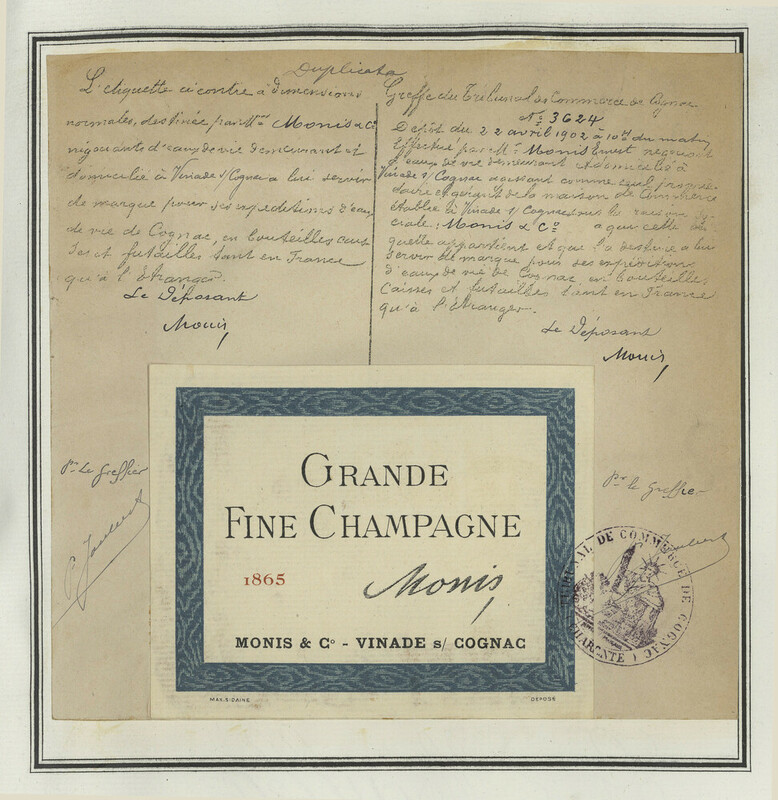 Duplicata
L'étiquette ci contre à dimensions
normales, destinée par Mrs Monis & Co
négociants d'eaux de vie demeurant et
domiciliés à Vinade s/ Cognac a lui servir
de marque pour ses expéditions d'eaux
de vie de Cognac, en bouteilles cais
ses et futailles tant en France
qu'à l'étranger.
Le Déposant
Monis
Greffe du Tribunal de Commerce de Cognac
No 3624
Dépôt du 22 avril 1902 à 10h du matin
Effectué par Mr Monis Ernest négociant
d'eaux de vie demeurant et domicilié à
Vinade s/ Cognac agissant comme seul proprié
taire et gérant de la maison de commerce
établie à Vinade s/ Cognac sous la raison so
ciale: Monis & Co a que cette éti
quette appartient et qui l'a destinée a lui
servir de marque pour ses expéditions
d'eaux de vie de Cognac en bouteilles
caisses et futailles tant en France
qu'à l'étranger.
Le Déposant
Monis
Pr Le Greffier
Pr le Greffier
GRANDE
FINE CHAMPAGNE
1865
Monis
MONIS & Co - VINADE s/ COGNAC
DÉPOSÉ
TRIBUNAL DE COMMERCE DE COGNAC
(CHARENTE)